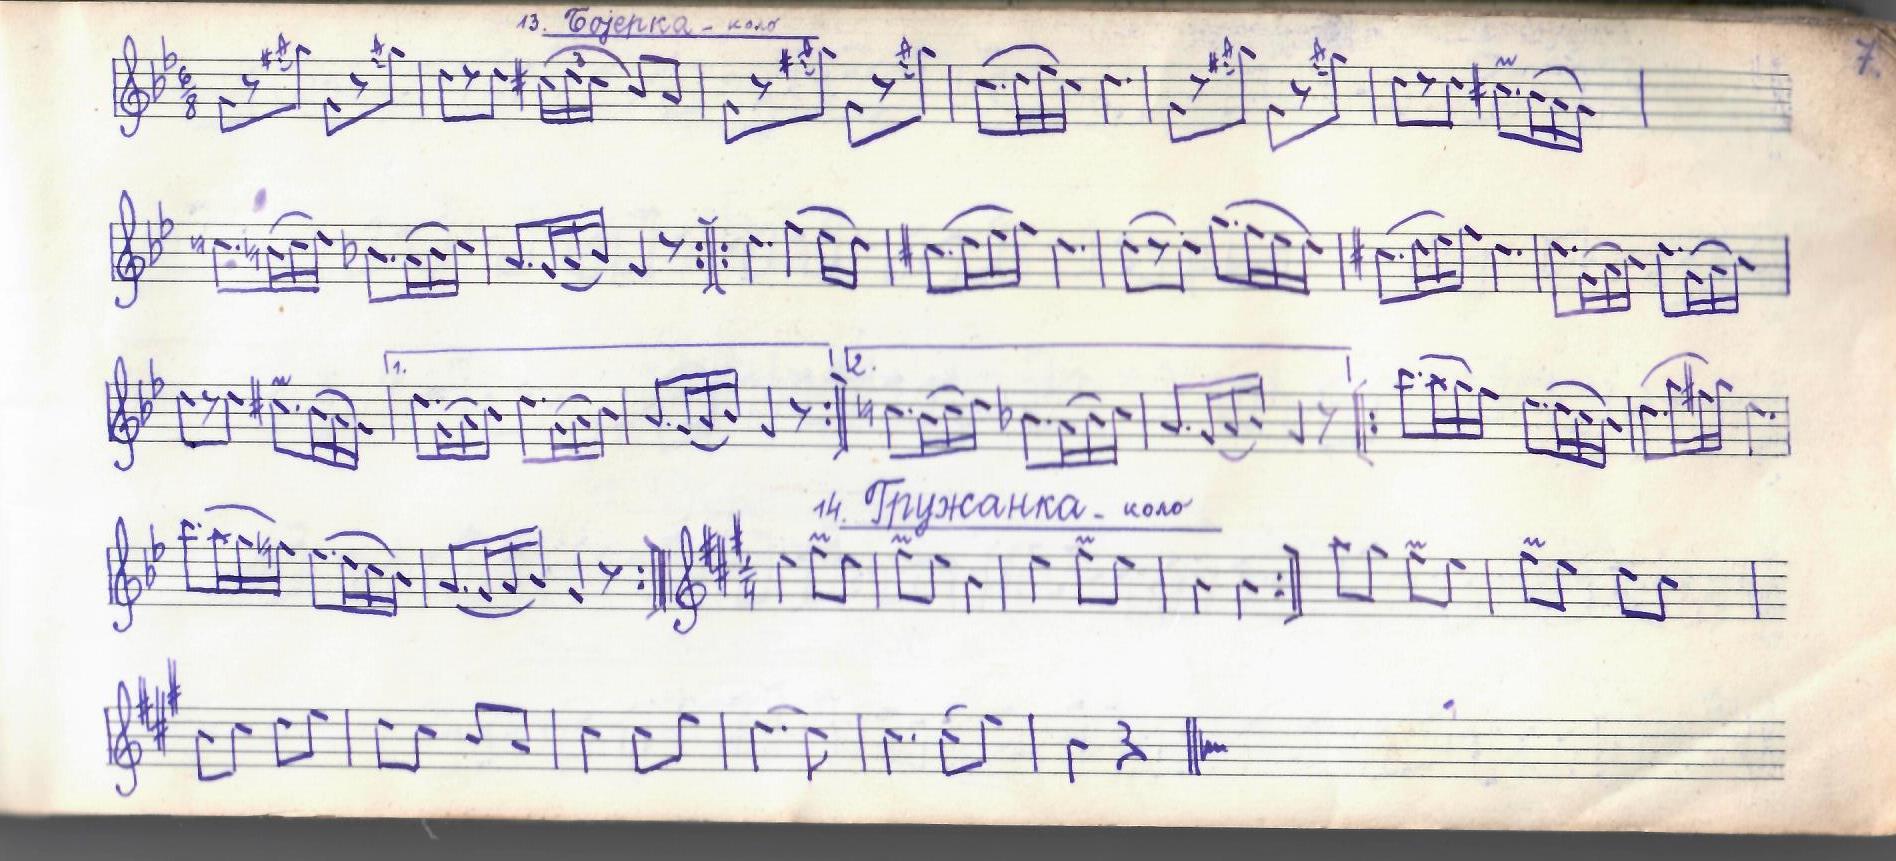 13. Бојерка - коло
7.
6
8
3
1.
2.
14. Гружанка - коло
2
4